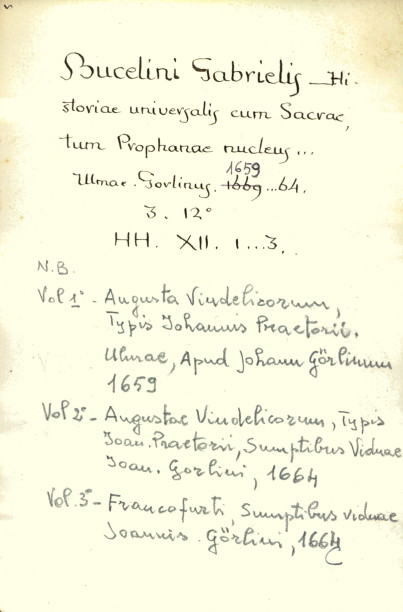 Bucelini Gabrielis Hi-
storiae universalis cum Sacrae,
tum Prophanae nucleus...
1659
Ulmae. Gorlinus. 1669...64.
3. 12°
HH. XII. 1...3.
N.B.
Vol 1° - Augusta Vindelicorum,
Typis Johannis Praetorii.
Ulmae, Apud Johann Görlinum
1659
Vol 2° - Augustae Vindelicorum, Typis
Joan. Praetorii, Sumptibus Viduae
Joan. Gorlini, 1664
Vol. 3° - Francofurti, Sumptibus viduae
Joannis Görlini, 1664